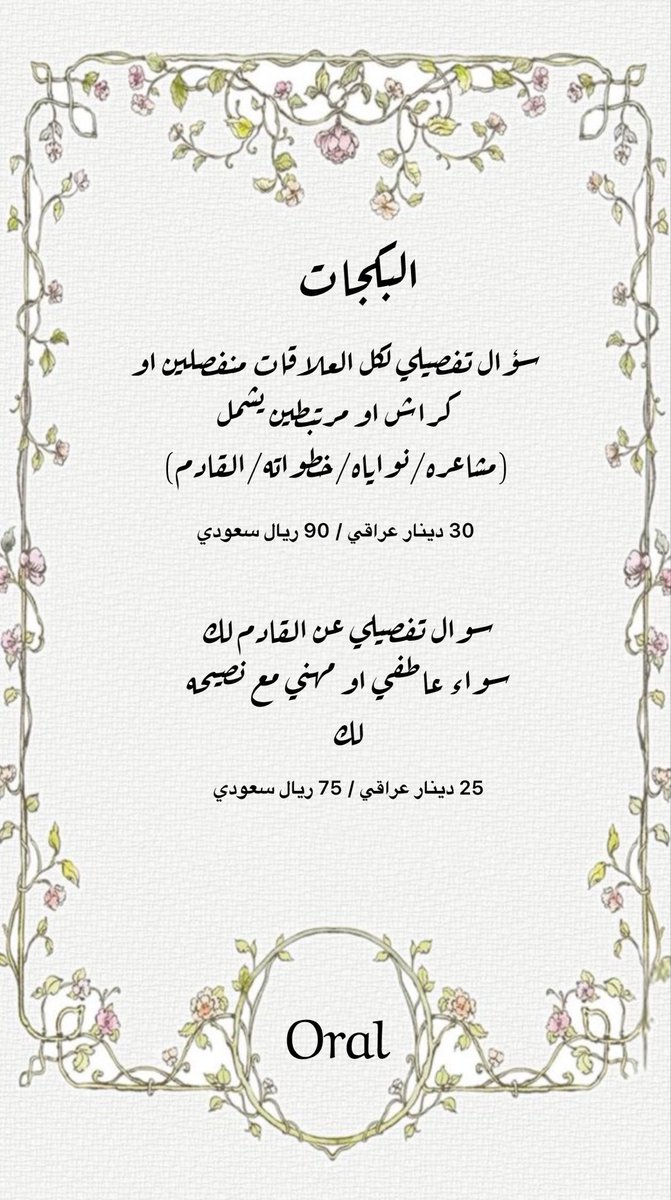 البكجات
سؤال تفصيلي لكل العلاقات منفصلين او
كراش او مرتبطين يشمل
(مشاعره/نواياه/خطواته/القادم)
30 دينار عراقي / 90 ريال سعودي
سوال تفصيلي عن القادم لك
سواء عاطفي او مهني مع نصيحه
لك
25 دينار عراقي / 75 ريال سعودي
Oral